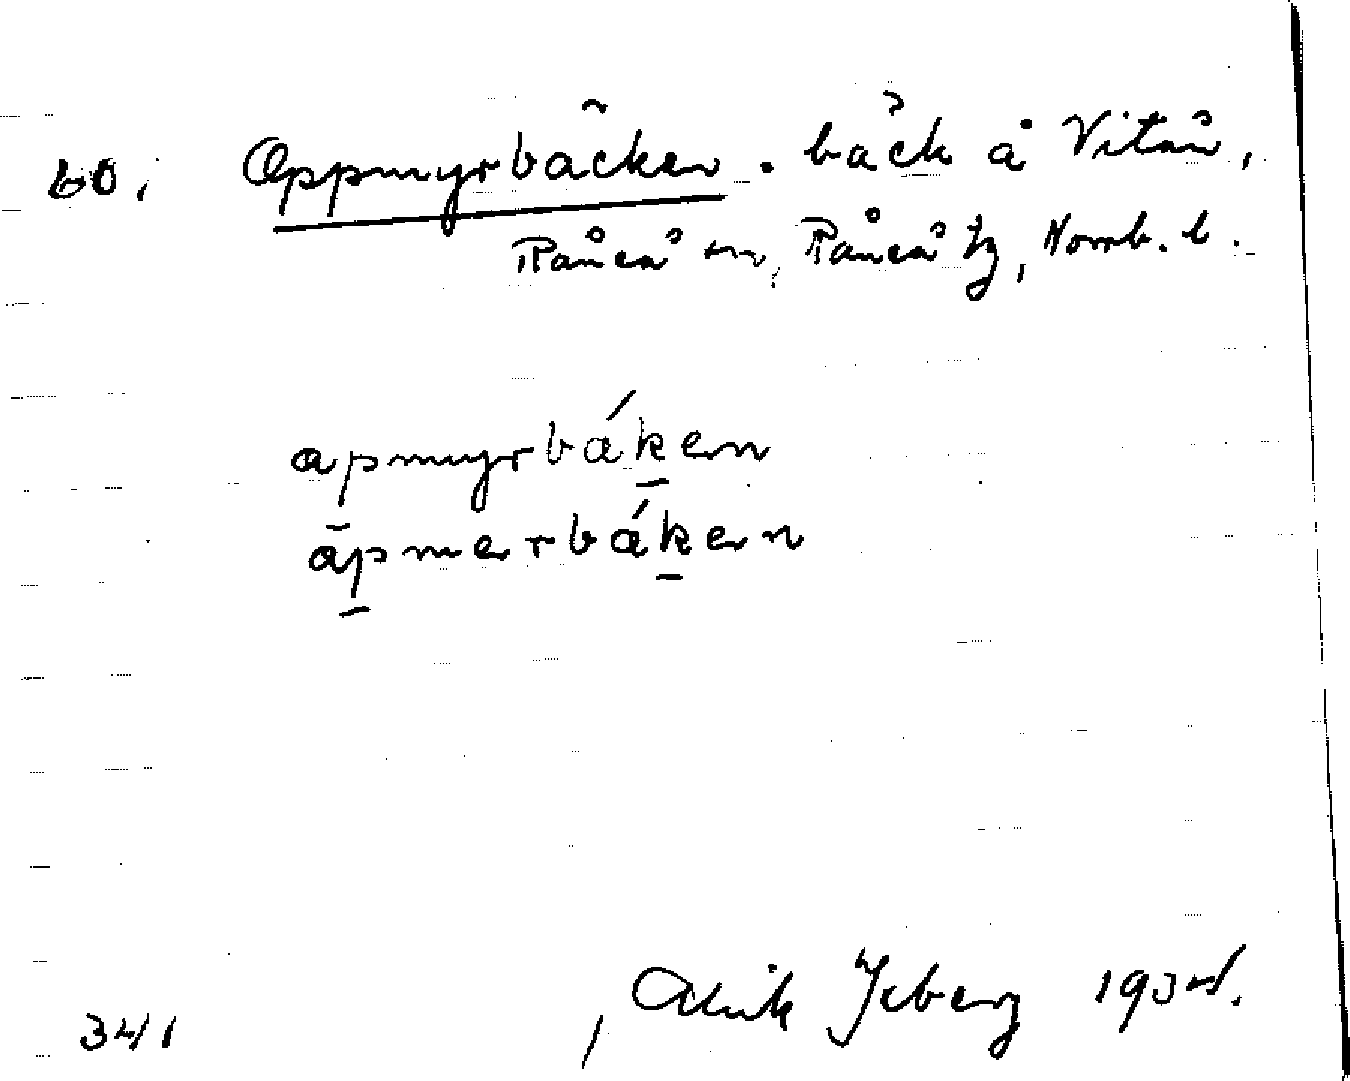 60. Oppmyrbäcken. bäck å Vitån,
Råneå sn, Råneå tg, Norrb. l.
apmyrbáken
āpmerbáken
34/1 Isberg 1934.